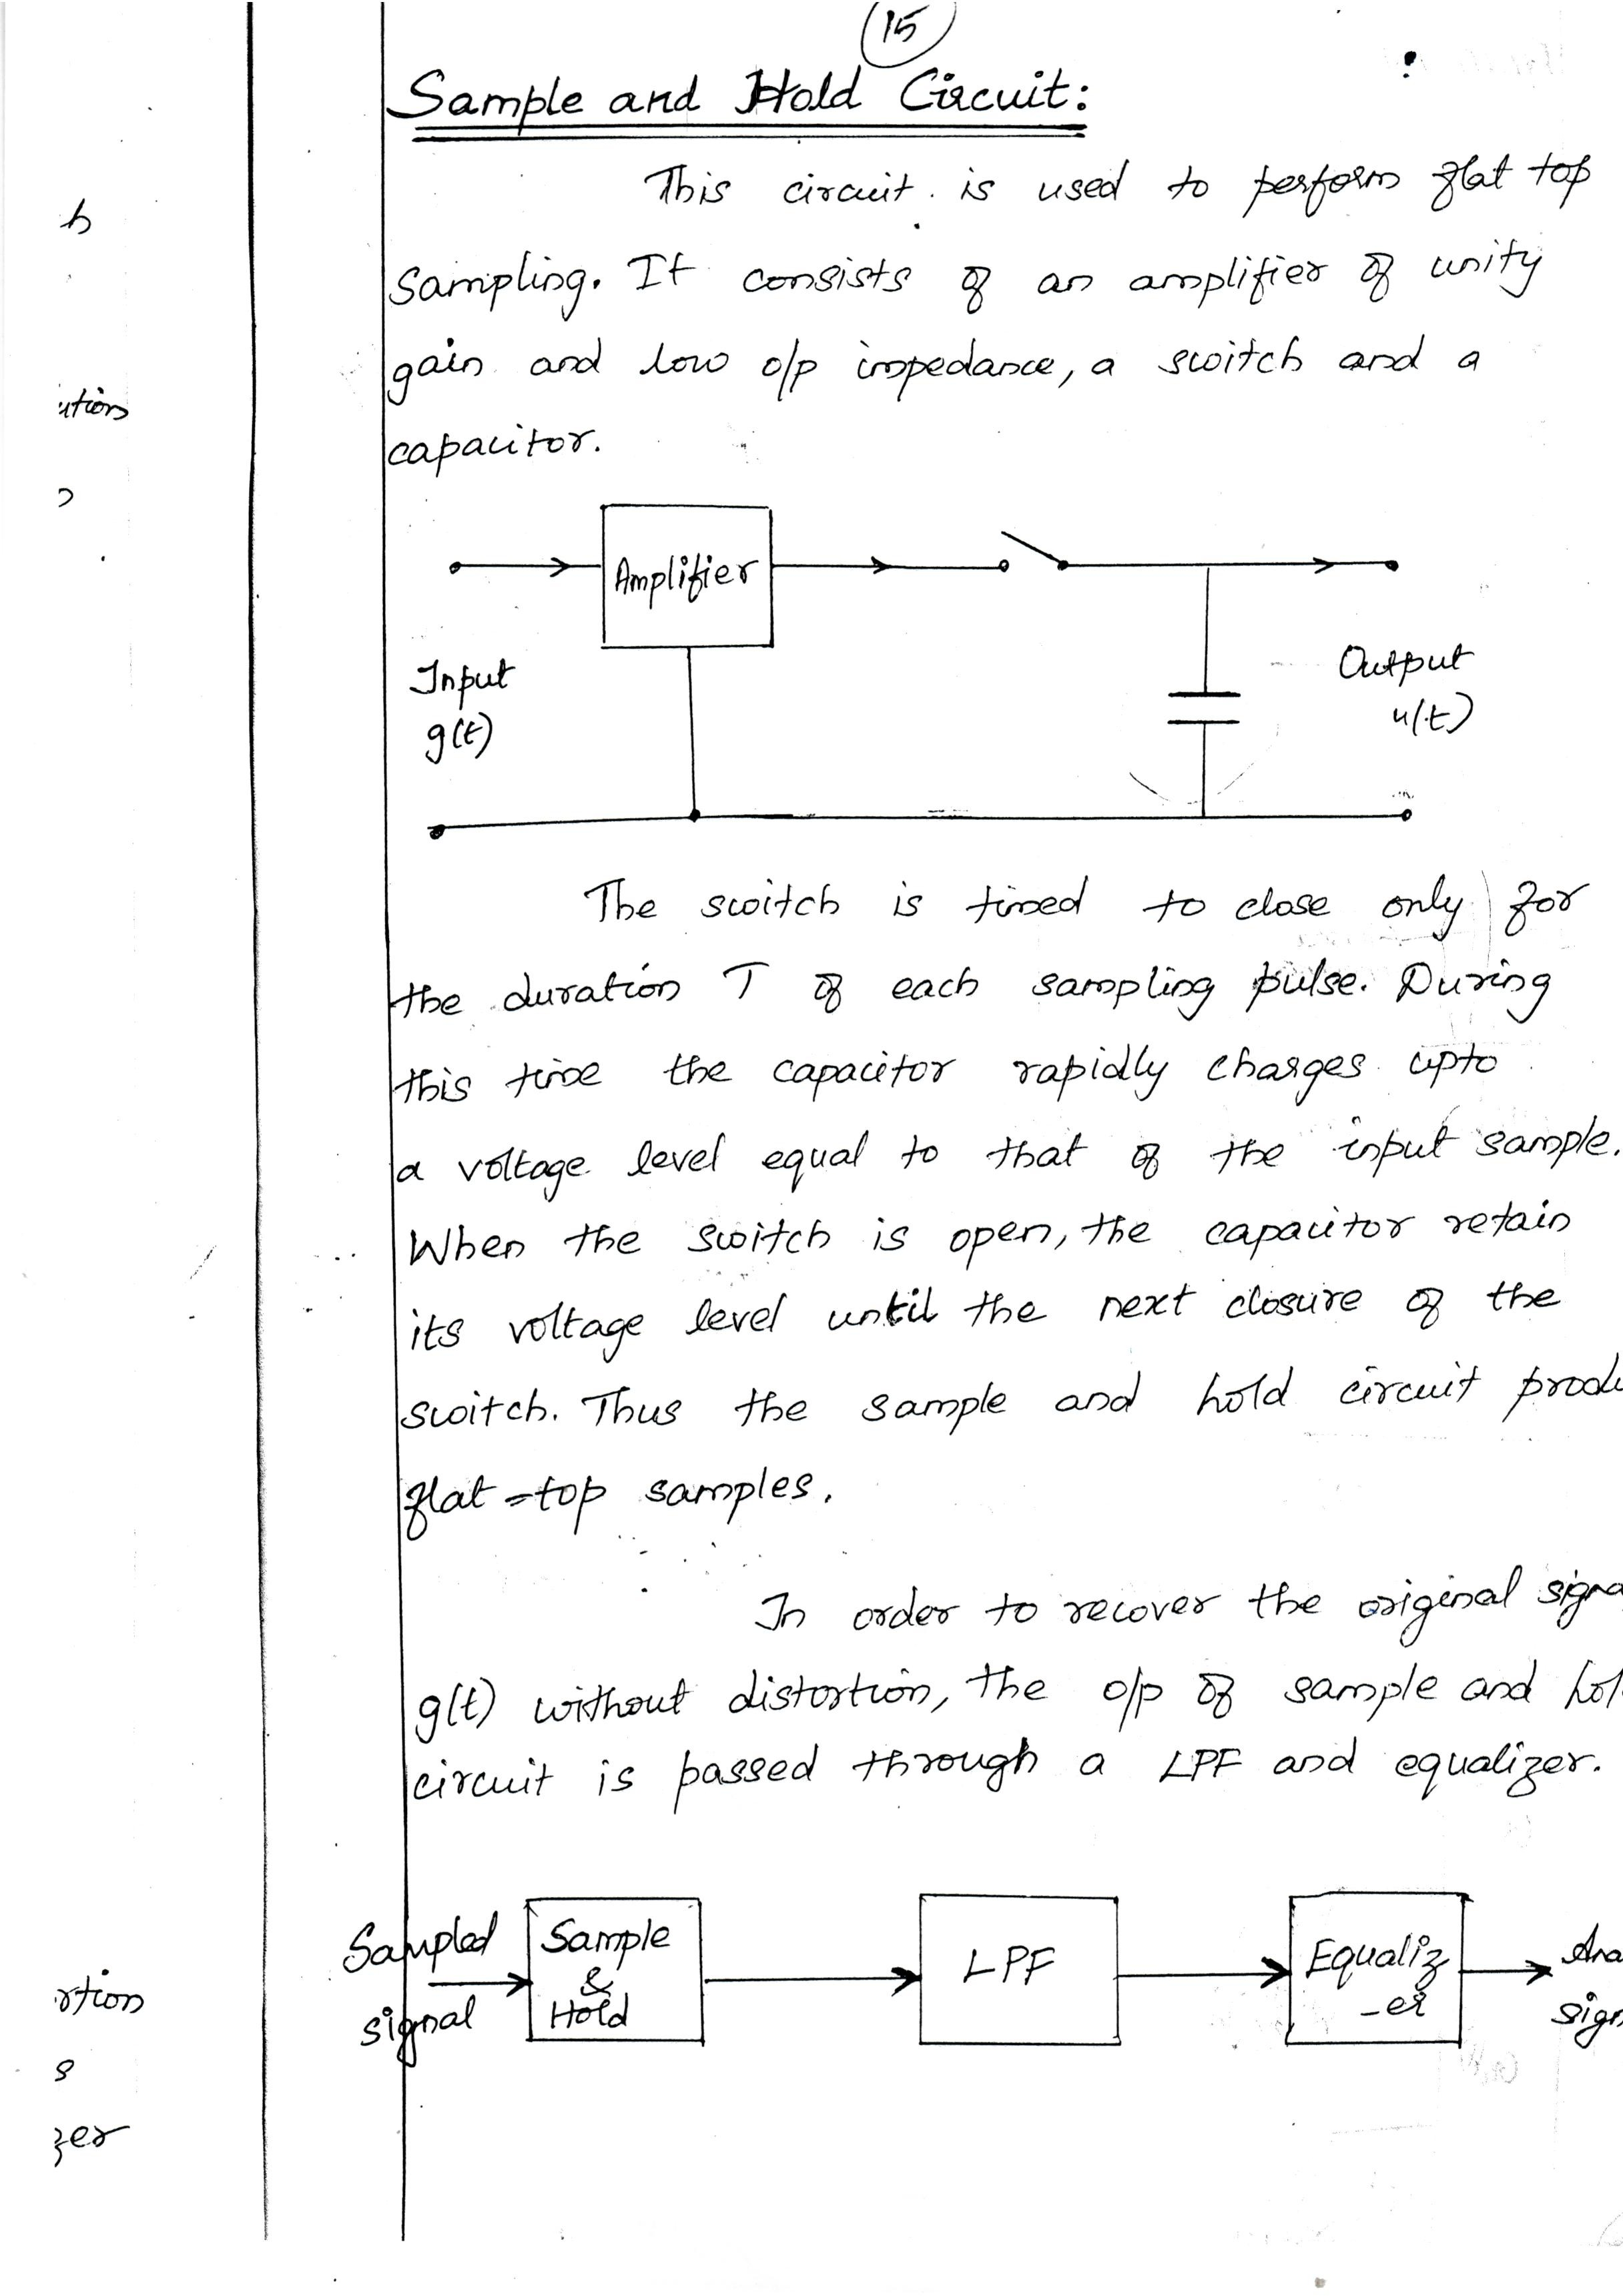 15
Sample and Hold Circuit:
This circuit is used to perform flat top
sampling. It consists of an amplifier of unity
gain and low o/p impedance, a switch and a
capacitor.
Amplifier
Input
g(t)
Output
u(t)
The switch is timed to close only for
the duration T of each sampling pulse. During
this time the capacitor rapidly charges upto
a voltage level equal to that of the input sample.
When the switch is open, the capacitor retain
its voltage level until the next closure of the
switch. Thus the sample and hold circuit produ
flat-top samples.
In order to recover the original signa
g(t) without distortion, the o/p of sample and hol
circuit is passed through a LPF and equalizer.
Sampled
signal
Sample
&
Hold
LPF
Equaliz
-er
Ana
sign